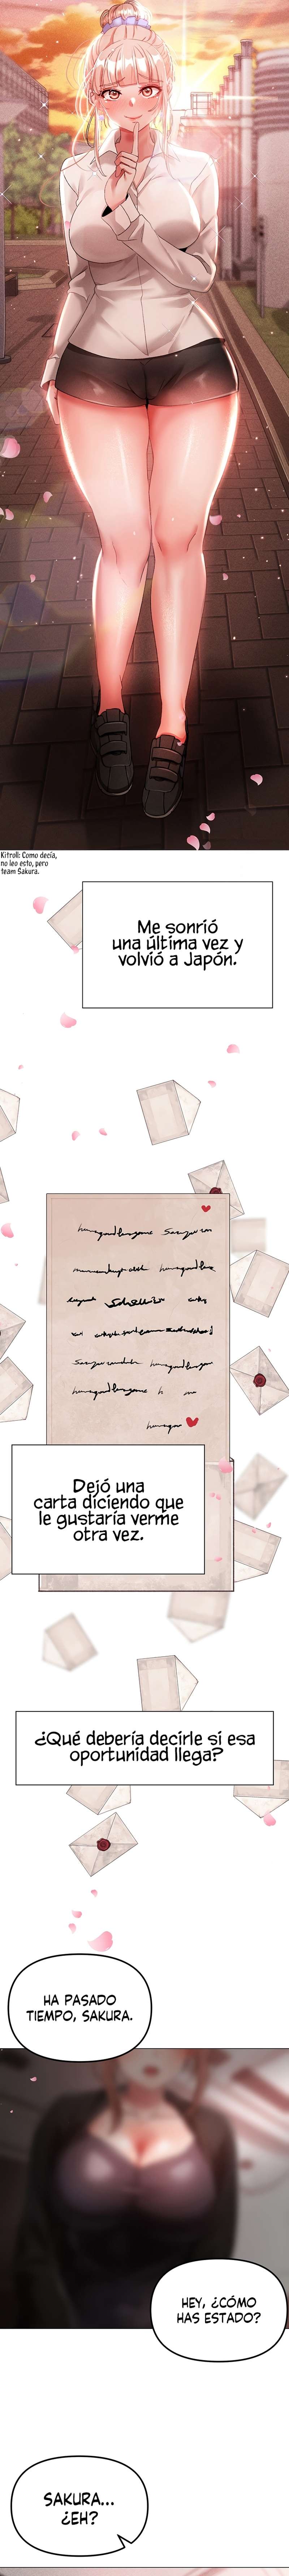 Kitroll: Como decía,
no leo esto, pero
team Sakura.
Me sonrió
una última vez y
volvió a Japón.
Dejó una
carta diciendo que
le gustaría verme
otra vez.
¿Qué debería decirle si esa
oportunidad llega?
HA PASADO
TIEMPO, SAKURA.
HEY, ¿CÓMO
HAS ESTADO?
SAKURA...
¿EH?